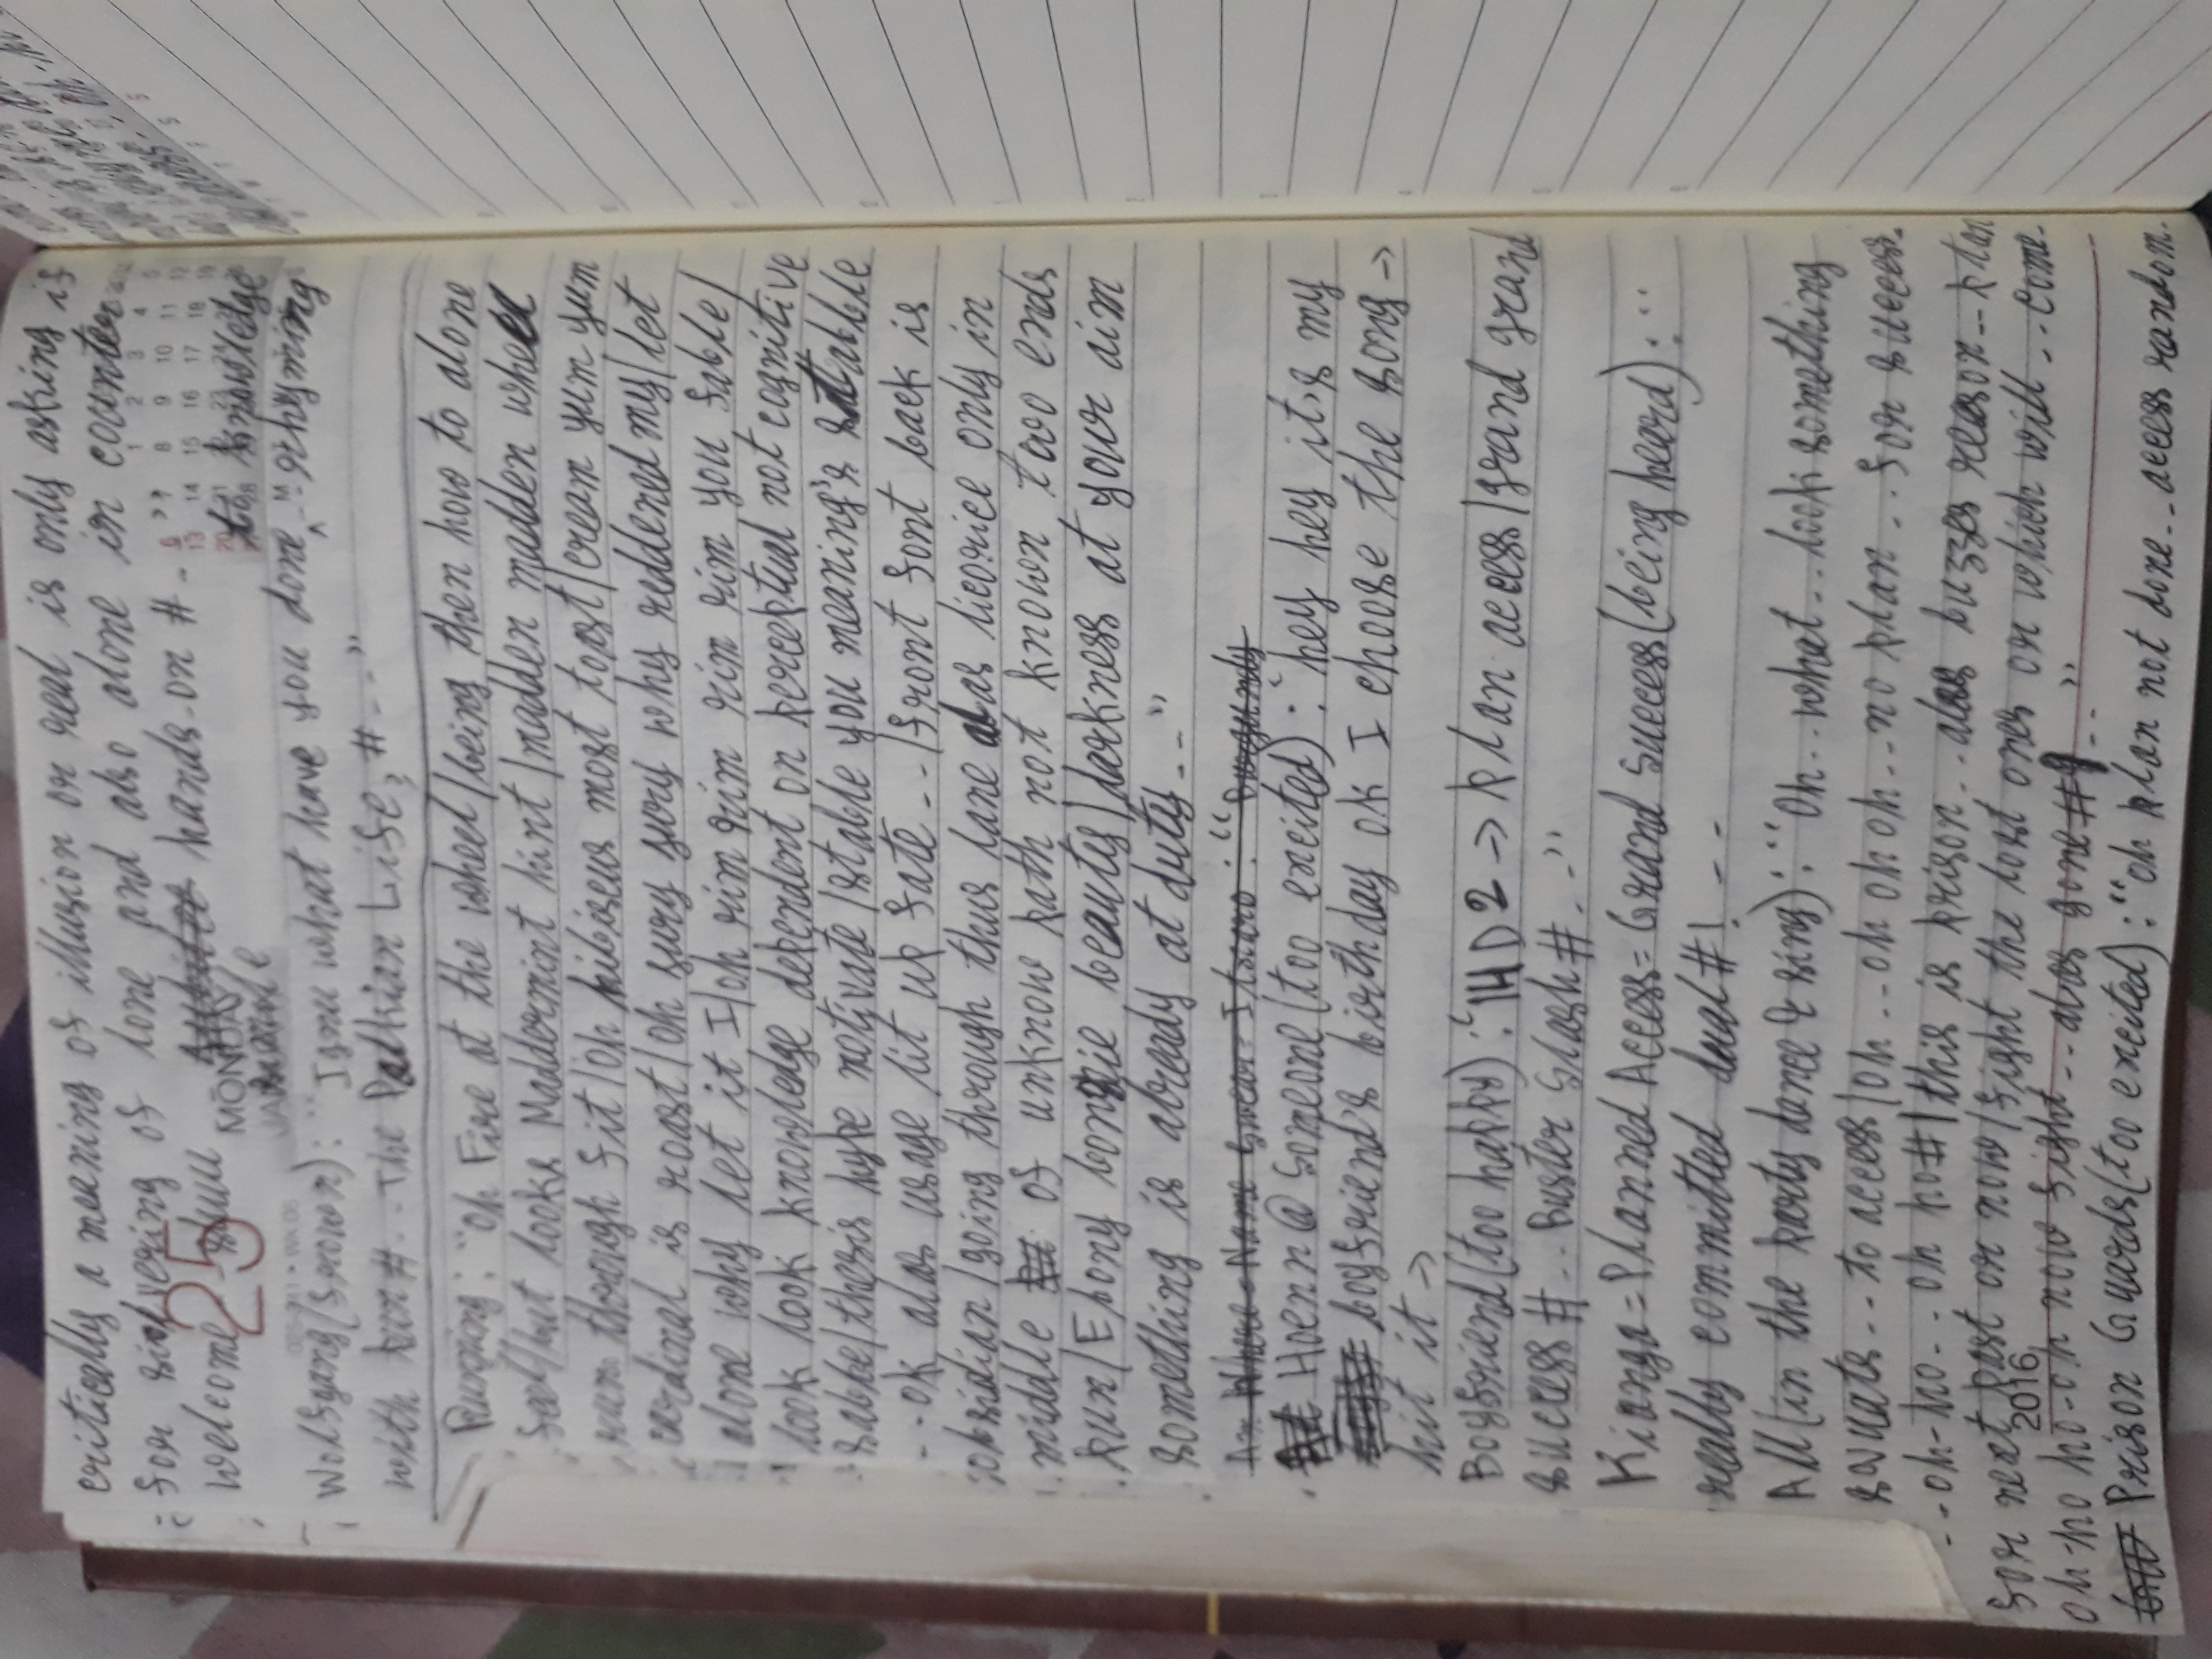 critically a meaning of illusion or real is only asking is
for of lone and also alone in counter
welcome hands-on # - "
25
MONDAY
to knowledge
Wolfgang(frown): " what have you done rhyming
with pun#..The Life, #--"
Running: "Oh Fire at the wheel/being then how to alone
feel/but looks Maddermint hint/madden madden wheel
run through fit/oh hibiscus most toast/cream yum yum
cardinal is roast/oh fury fury why reddened my/let
alone why let it I/oh rim rim rim rim you fable/
look look knowledge dependent on perceptual not cognitive
/thesis hype motivate/stable you meaning's
--ok alas usage lit up fate--/front font back is
obsidian/going through thus lane alas licorice only in
middle of unknow path not known two ends
pun/Ebony beauty/darkness at your aim
something is already at duty--"
Hoenn@Someone(too excited): "hey hey it's my
boyfriend's birthday ok I choose the song→
hit it→
Boyfriend(too happy): "IHD2→plan access/grand grand
success#..Buster Slash#.-"
Kianga=Planned Access=Grand Success(being heard): "
really committed dual#! --
All(in the party dance & sing): "Oh..what..look something
..to access/oh..oh oh oh..no plan..for success.
--oh-ho..oh ho#/this is prison..alas buzzes reason..plan
for next past or now/fight the lost ones or which will..come-
2016
oh-ho ho-oh now fight..alas gone#!.."
Prison Guards(too excited): "oh plan not done..access random.